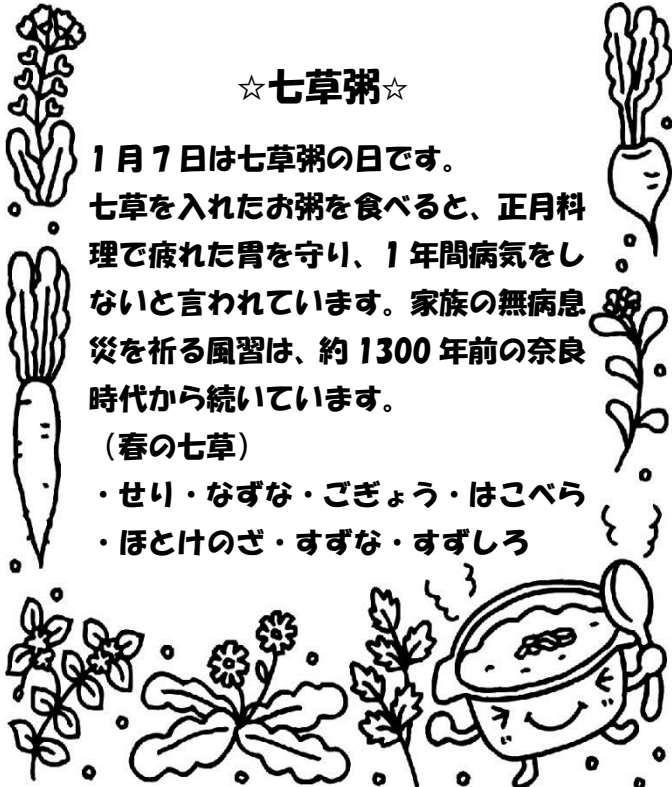 ☆七草粥☆
1月7日は七草粥の日です。
七草を入れたお粥を食べると、正月料
理で疲れた胃を守り、1年間病気をし
ないと言われています。家族の無病息
災を祈る風習は、約1300年前の奈良
時代から続いています。
（春の七草）
・せり・なずな・ごぎょう・はこべら
・ほとけのざ・すずな・すずしろ